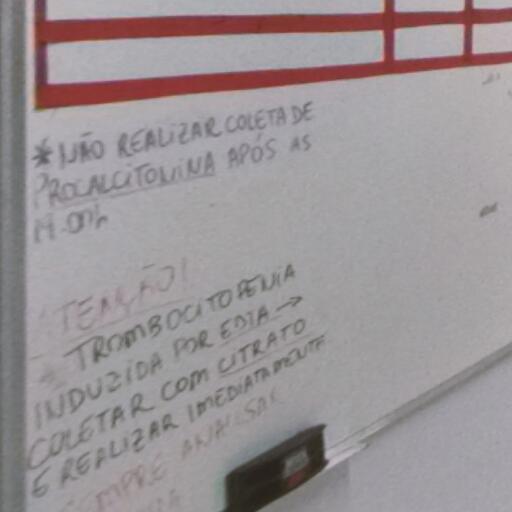 * NÃO REALIZAR COLETA DE
PROCALCITONINA APÓS AS
ATENÇÃO!
* TROMBOCITOPENIA
INDUZIDA POR EDTA →
COLETAR COM CITRATO
E REALIZAR IMEDIATAMENTE
SEMPRE ANALISAR